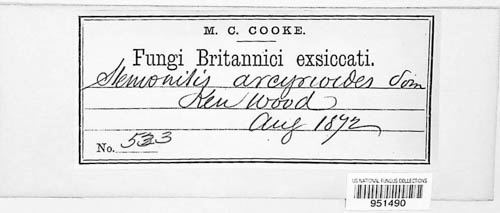 M. C. COOKE.
Fungi Britannici exsiccati.
Stemonitis arcyrioides Som
Ken Wood
Aug 1872
No. 533
US NATIONAL FUNGUS COLLECTIONS
951490